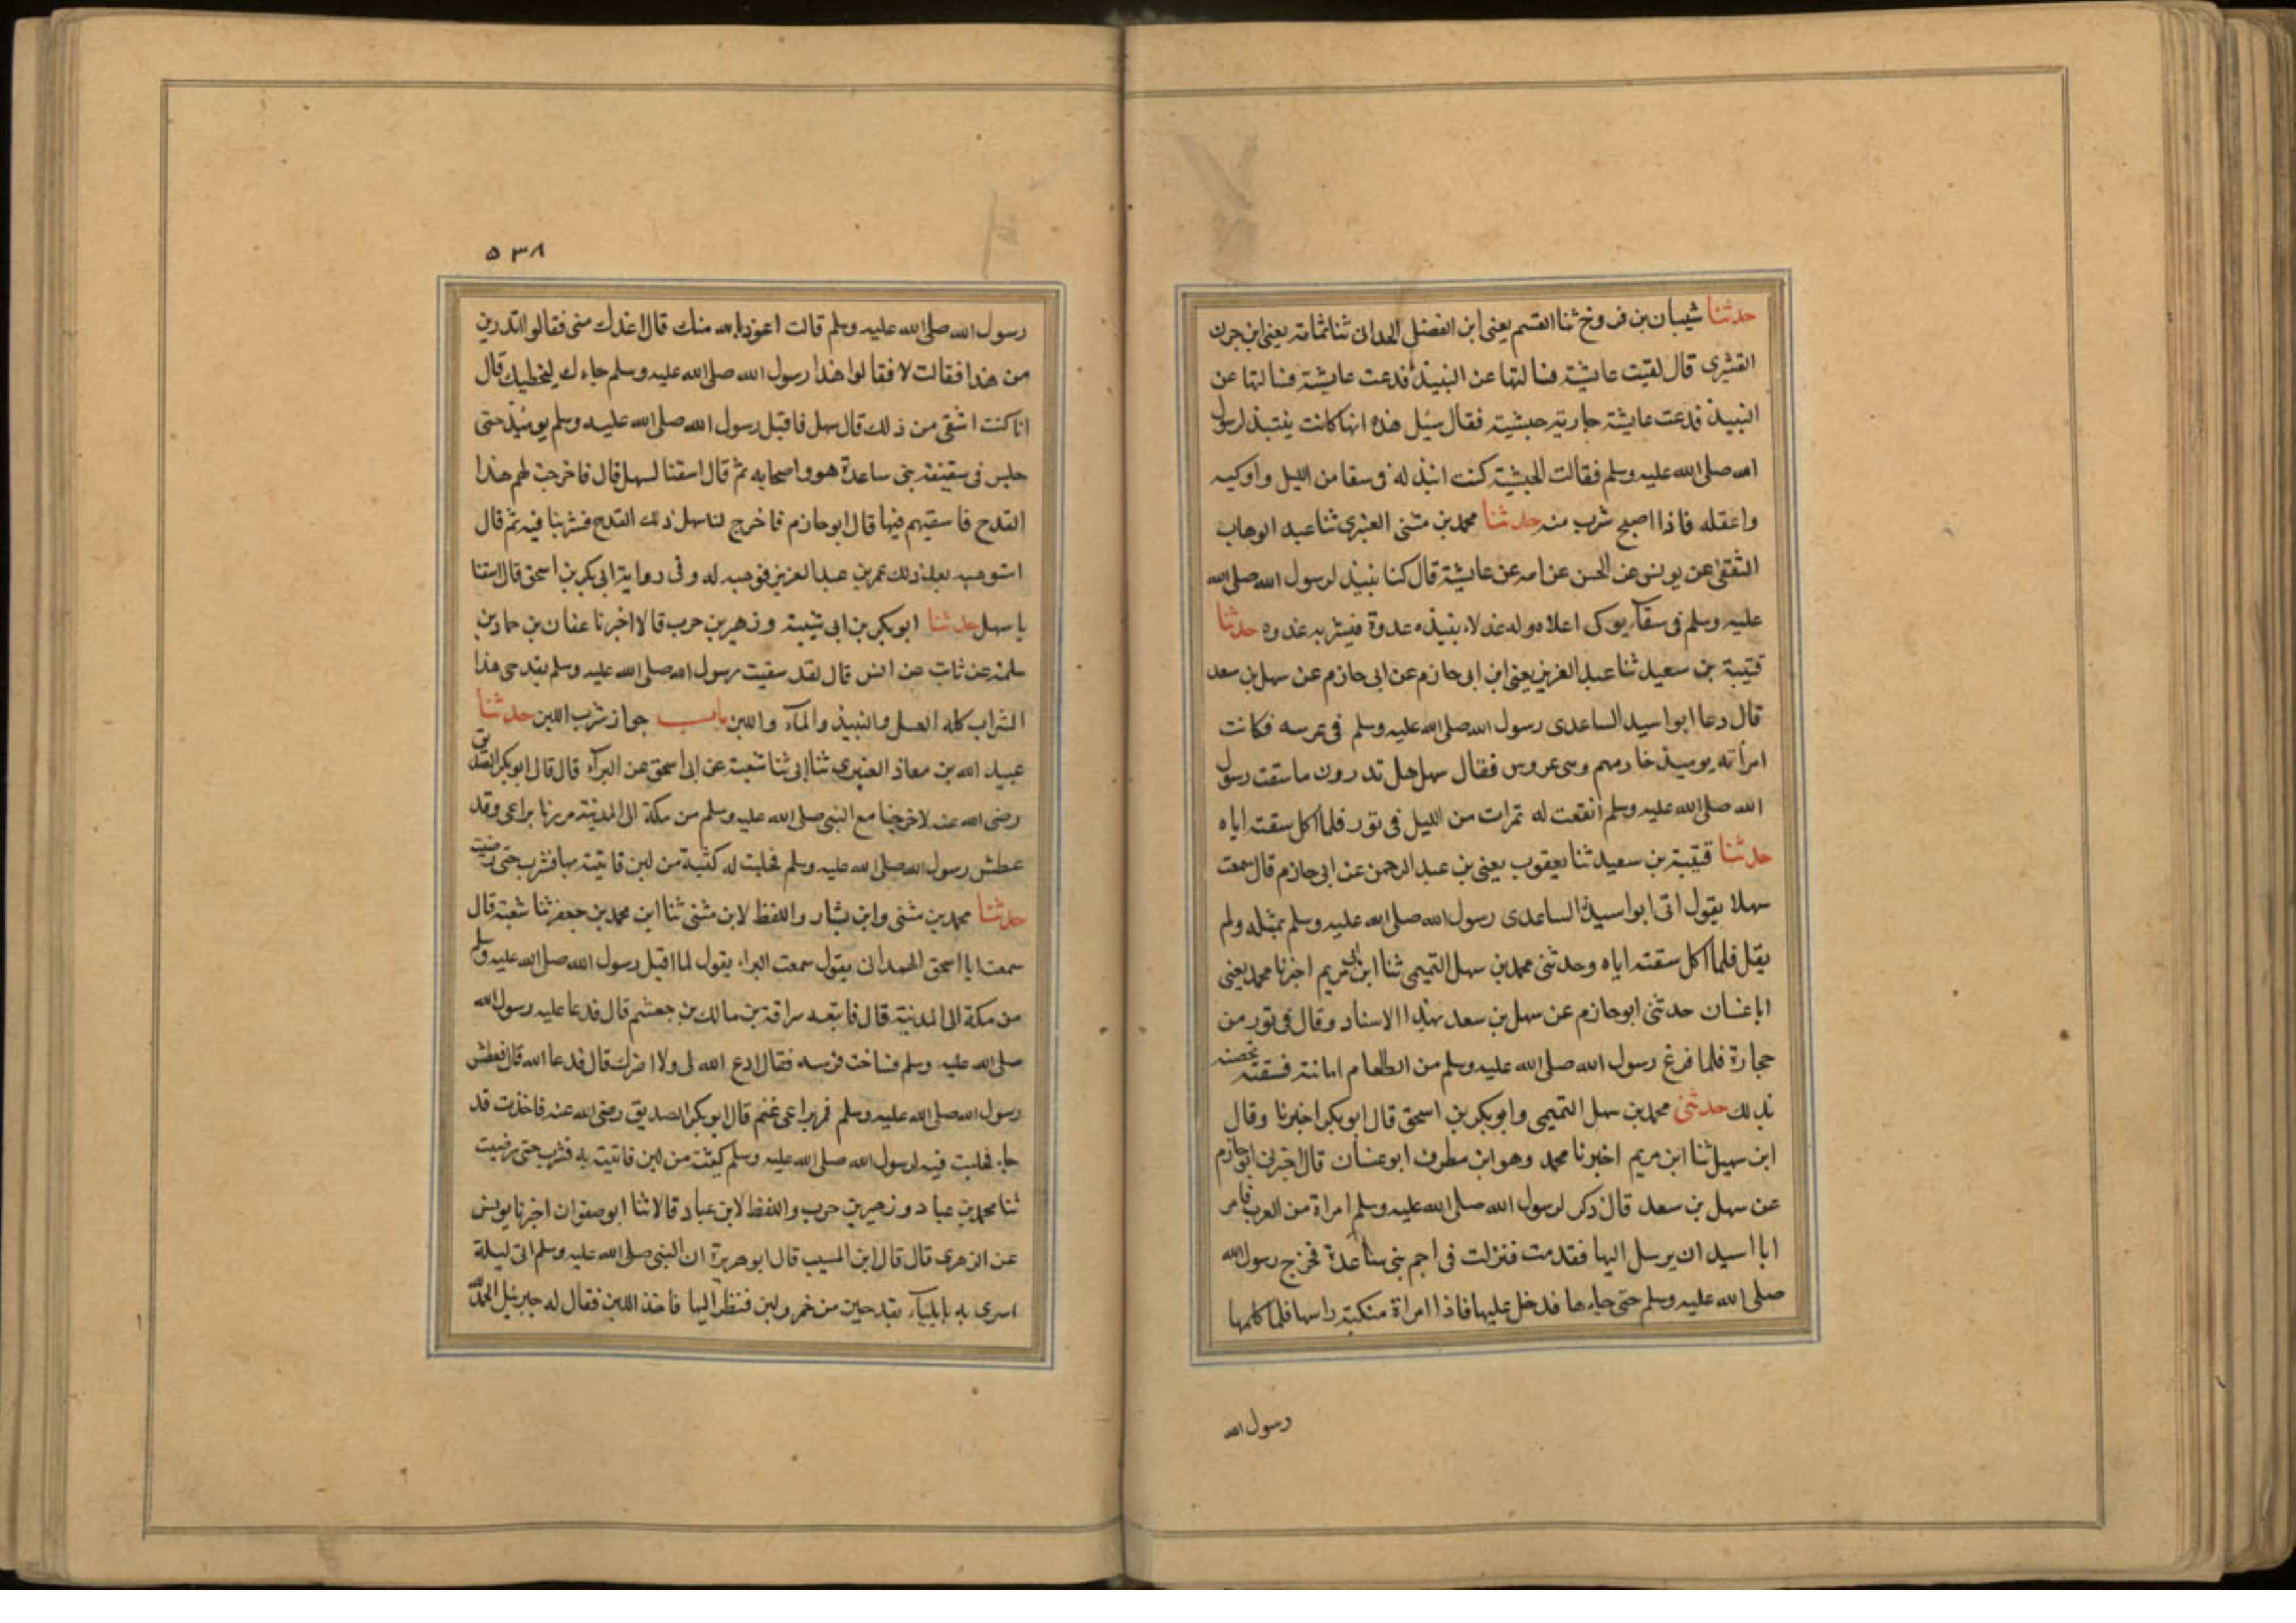 حدثنا شيبان بن فروخ ثنا القسم يعنى ابن الفضل الحدانى ثنا ثمامة يعنى ابن حزن
القشيرى قال لقيت عايشة فسالتها عن النبيذ فدعت عايشة فسالتها عن
النبيذ فدعت عايشة جارية حبشية فقال سئل هذه انها كانت ينتبذ لرسول
الله صلى الله عليه وسلم فقالت الحبشية كنت انبذ له فى سقا من الليل واوكيه
واعقله فاذا اصبح شرب منه حدثنا محمد بن مثنى العنبرى ثنا عبد الوهاب
الثقفى عن يونس عن الحسن عن امه عن عايشة قال كنا ننبذ لرسول الله صلى الله
عليه وسلم فى سقآء يوكى اعلاه وله عزلاء ننبذه غدوة فيشربه غدوه حدثنا
قتيبة بن سعيد ثنا عبد العزيز يعنى ابن ابى حازم عن ابى حازم عن سهل بن سعد
قال دعا ابو اسيد الساعدى رسول الله صلى الله عليه وسلم فى عرسه فكانت
امرأته يوميذ خادمهم وهى عروس فقال سهل هل تدرون ما سقت رسول
الله صلى الله عليه وسلم انقعت له تمرات من الليل فى تور فلما اكل سقته اياه
حدثنا قتيبة بن سعيد ثنا يعقوب يعنى بن عبد الرحمن عن ابى حازم قال سمعت
سهلا يقول اتى ابو اسيد الساعدى رسول الله صلى الله عليه وسلم بمثله ولم
يقل فلما اكل سقته اياه وحدثنى محمد بن سهل التميمى ثنا ابن ابى مريم اخبرنا محمد يعنى
ابا غسان حدثنى ابو حازم عن سهل بن سعد بهذا الاسناد وقال فى تور من
حجارة فلما فرغ رسول الله صلى الله عليه وسلم من الطعام اماثته فسقته تخصه
بذلك حدثنى محمد بن سهل التميمى وابو بكر بن اسحق قال ابو بكر اخبرنا وقال
ابن سهيل ثنا ابن مريم اخبرنا محمد وهو ابن مطرف ابو غسان قال اخبرنى ابو حازم
عن سهل بن سعد قال ذكر لرسول الله صلى الله عليه وسلم امراة من العرب فامر
ابا اسيد ان يرسل اليها فقدمت فنزلت فى اجم بنى ساعدة فخرج رسول الله
صلى الله عليه وسلم حتى جاءها فدخل عليها فاذا امراة منكبة راسها فلما كلمها
رسول الله
٥٣٨
رسول الله صلى الله عليه وسلم قالت اعوذ بالله منك قال اعذتك منى فقالوا اتدرين
من هذا فقالت لا فقالوا هذا رسول الله صلى الله عليه وسلم جاءك ليخطبك قال
انا كنت اشقى من ذلك قال سهل فاقبل رسول الله صلى الله عليه وسلم يوميذ حتى
جلس فى سقيفة بنى ساعدة هو واصحابه ثم قال اسقنا لسهل قال فاخرجت لهم هذا
القدح فاسقيهم فيها قال ابو حازم فاخرج لنا سهل ذلك القدح فشربنا فيه ثم قال
استوهبه بعد ذلك عمر بن عبد العزيز فوهبه له وفى رواية ابى بكر بن اسحق قال اسقنا
يا سهل حدثنا ابو بكر بن ابى شيبة وزهير بن حرب قالا اخبرنا عفان بن حماد بن
سلمة عن ثابت عن انس قال لقد سقيت رسول الله صلى الله عليه وسلم بقدحى هذا
الشراب كله العسل والنبيذ والمآء واللبن باب جواز شرب اللبن حدثنا
عبيد الله بن معاذ العنبرى ثنا ابى ثنا شعبة عن ابى اسحق عن البرآء قال قال ابو بكر الصديق
رضى الله عنه لا خرجنا مع النبى صلى الله عليه وسلم من مكة الى المدينة مررنا براعى وقد
عطش رسول الله صلى الله عليه وسلم فحلبت له كثبة من لبن فاتيته بها فشرب حتى رضيت
حدثنا محمد بن مثنى وابن بشار واللفظ لابن مثنى ثنا ابن محمد بن جعفر ثنا شعبة قال
سمعت ابا اسحق الهمدانى يقول سمعت البراء يقول لما اقبل رسول الله صلى الله عليه وسلم
من مكة الى المدينة قال فاتبعه سراقة بن مالك بن جعشم قال فدعا عليه رسول الله
صلى الله عليه وسلم فساخت فرسه فقال ادع الله لى ولا اضرك قال فدعا الله قال فعطش
رسول الله صلى الله عليه وسلم فمر براعى غنم قال ابو بكر الصديق رضى الله عنه فاخذت قد
حا فحلبت فيه لرسول الله صلى الله عليه وسلم كثبة من لبن فاتيته به فشرب حتى رضيت
ثنا محمد بن عباد وزهير بن حرب واللفظ لابن عباد قالا ثنا ابو صفوان اخبرنا يونس
عن الزهرى قال قال ابن المسيب قال ابو هريرة ان النبى صلى الله عليه وسلم اتى ليلة
اسرى به بايلياء بقدحين من خمر ولبن فنظر اليها فاخذ اللبن فقال له جبرئيل الحمد لله